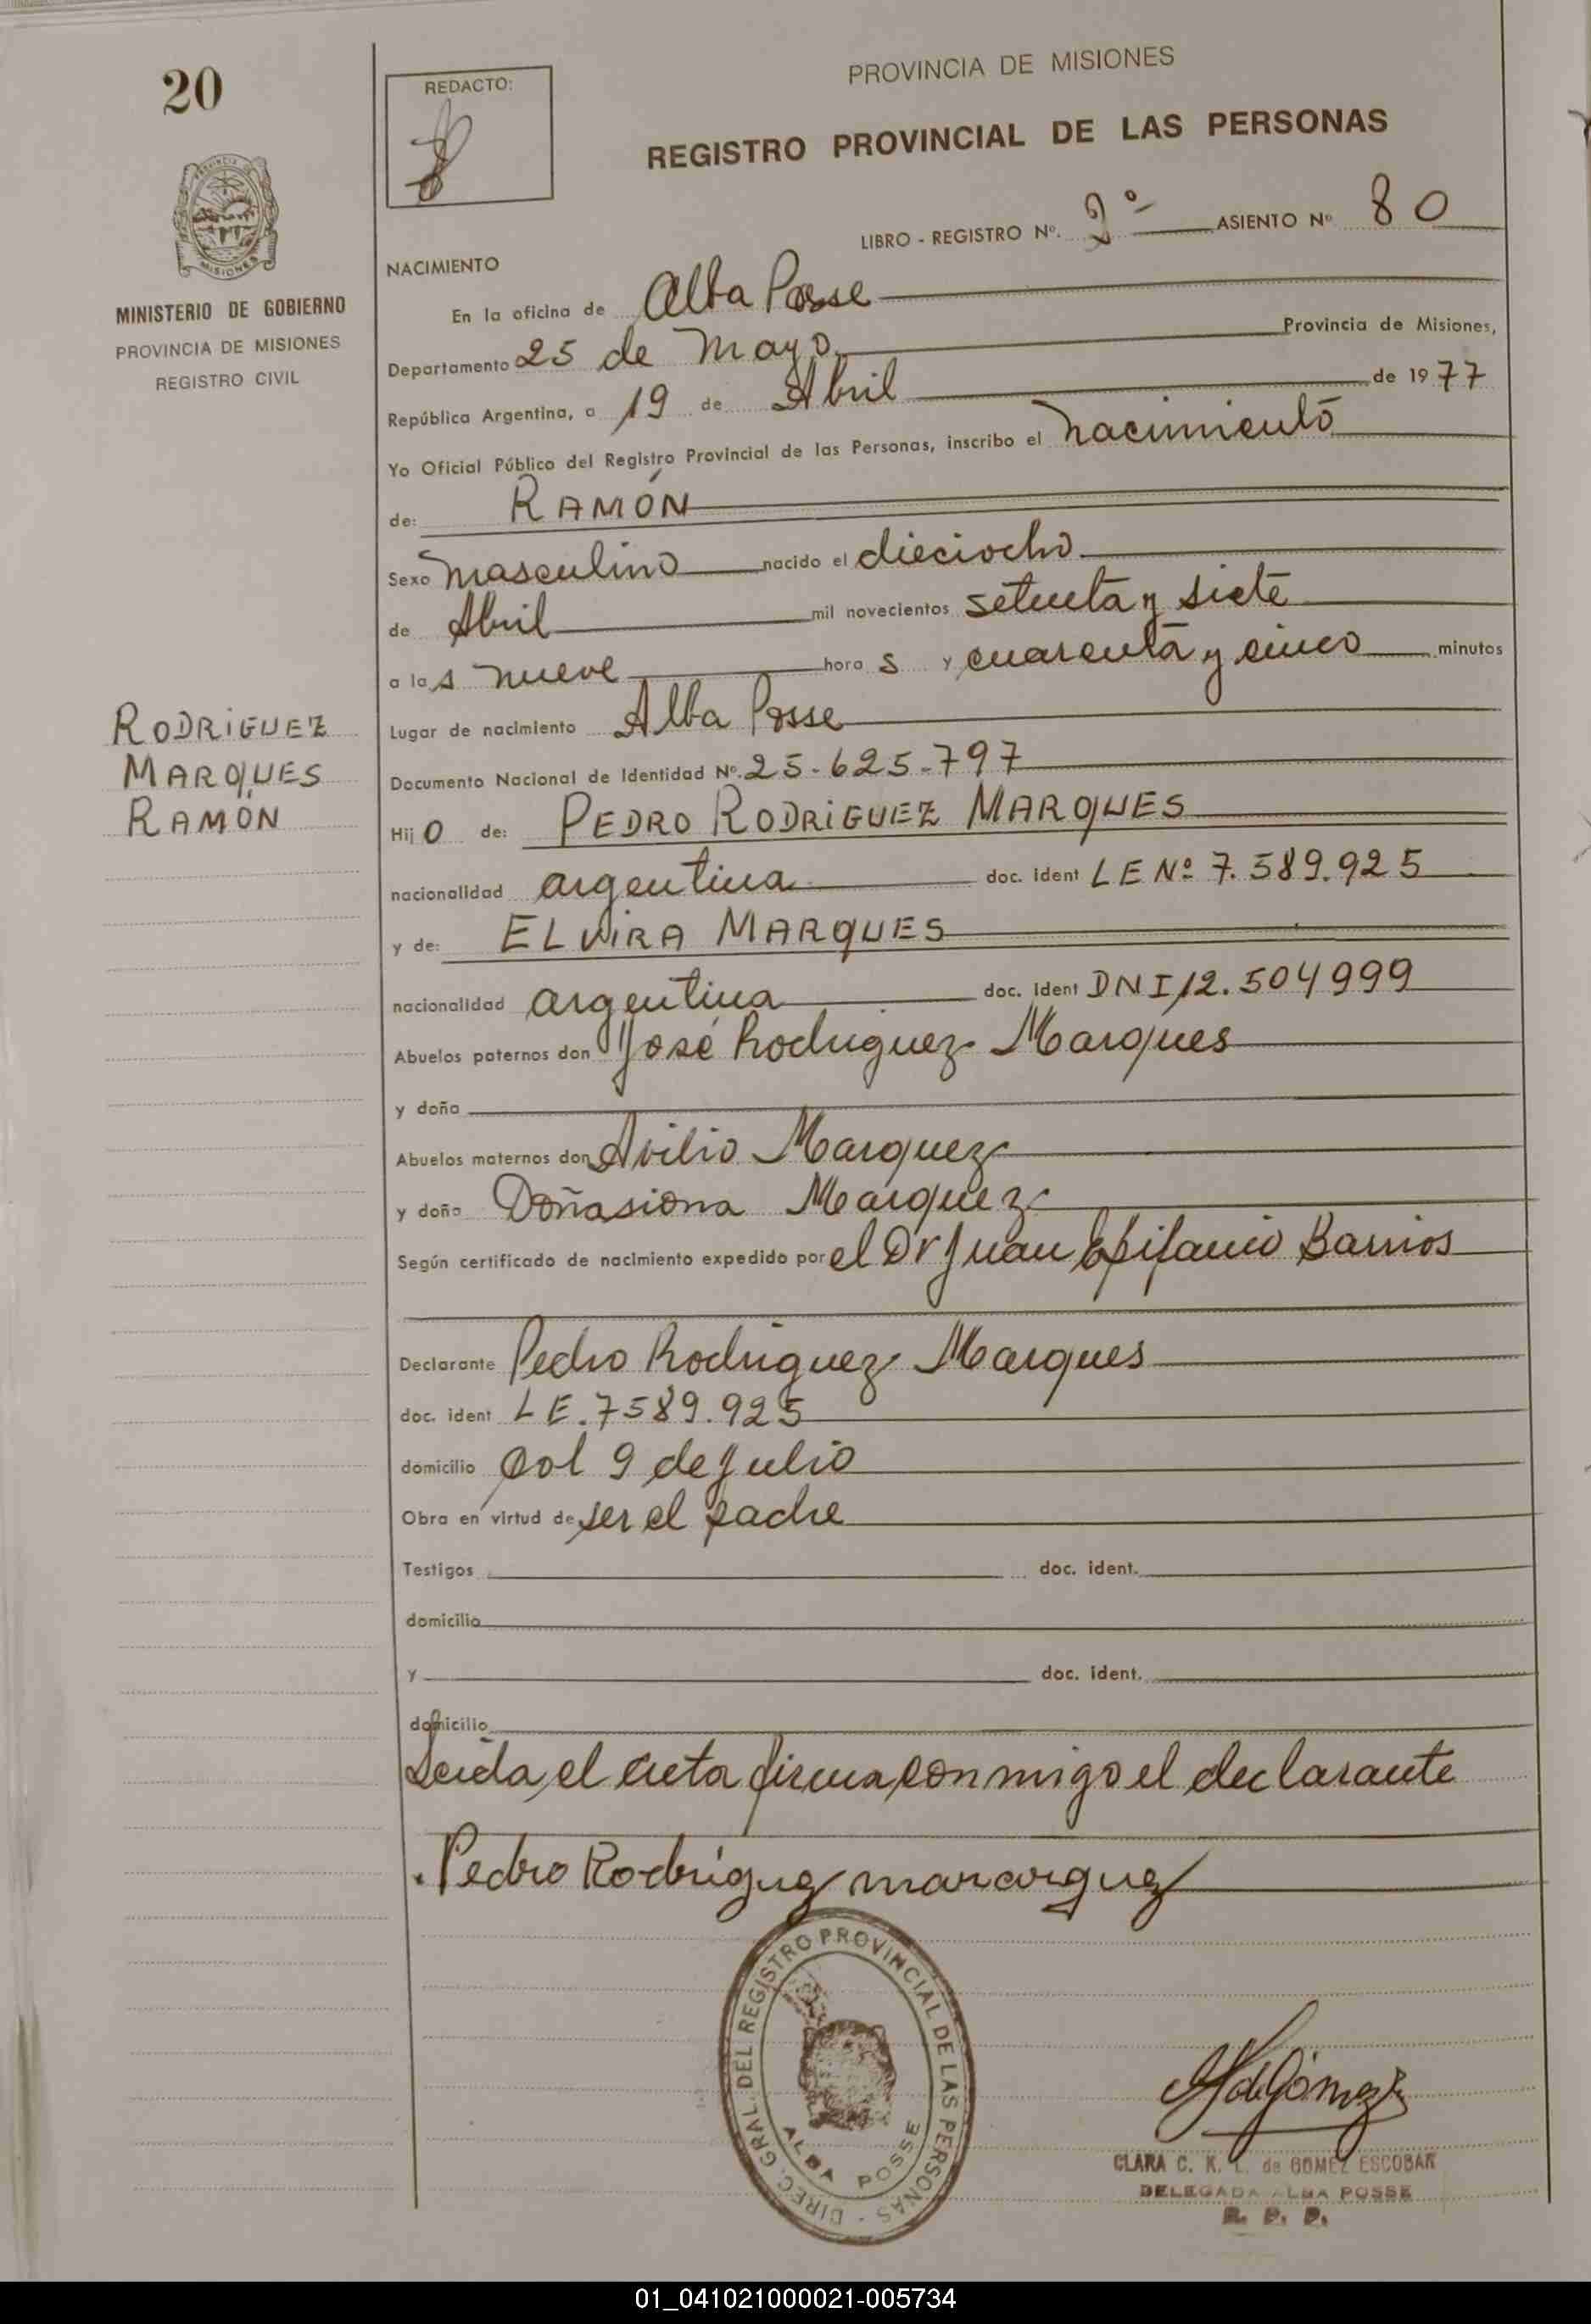 20
REDACTO:
PROVINCIA DE MISIONES
REGISTRO PROVINCIAL DE LAS PERSONAS
LIBRO - REGISTRO Nº. 2º ASIENTO Nº 80
PROVINCIA
MISIONES
MINISTERIO DE GOBIERNO
PROVINCIA DE MISIONES
REGISTRO CIVIL
NACIMIENTO
En la oficina de Alba Posse
Departamento 25 de Mayo Provincia de Misiones,
República Argentina, a 19 de Abril de 1977
Yo Oficial Público del Registro Provincial de las Personas, inscribo el nacimiento
de: RAMÓN
Sexo masculino nacido el dieciocho
de Abril mil novecientos setenta y siete
a las nueve horas y cuarenta y cinco minutos
RODRIGUEZ
MARQUES
RAMÓN
Lugar de nacimiento Alba Posse
Documento Nacional de Identidad Nº. 25-625-797
Hijo de: PEDRO RODRIGUEZ MARQUES
nacionalidad argentina doc. ident LE Nº 7.589.925
y de: ELVIRA MARQUES
nacionalidad argentina doc. ident DNI 12.504999
Abuelos paternos don José Rodriguez Marques
y doña
Abuelos maternos don Avilio Marquez
y doña Doñasiona Marquez
Según certificado de nacimiento expedido por el Dr Juan Epifanio Barrios
Declarante Pedro Rodriguez Marques
doc. ident LE.7589.925
domicilio Col 9 de Julio
Obra en virtud de ser el padre
Testigos doc. ident.
domicilio
y doc. ident.
domicilio
Leida el acta firma conmigo el declarante
Pedro Rodriguez marcarguez
DIREC. GRAL. DEL REGISTRO PROVINCIAL DE LAS PERSONAS -
ALBA POSSE
de Gómez
CLARA C. K. L. de GOMEZ ESCOBAR
DELEGADA ALBA POSSE
R. P. P.
01_041021000021-005734